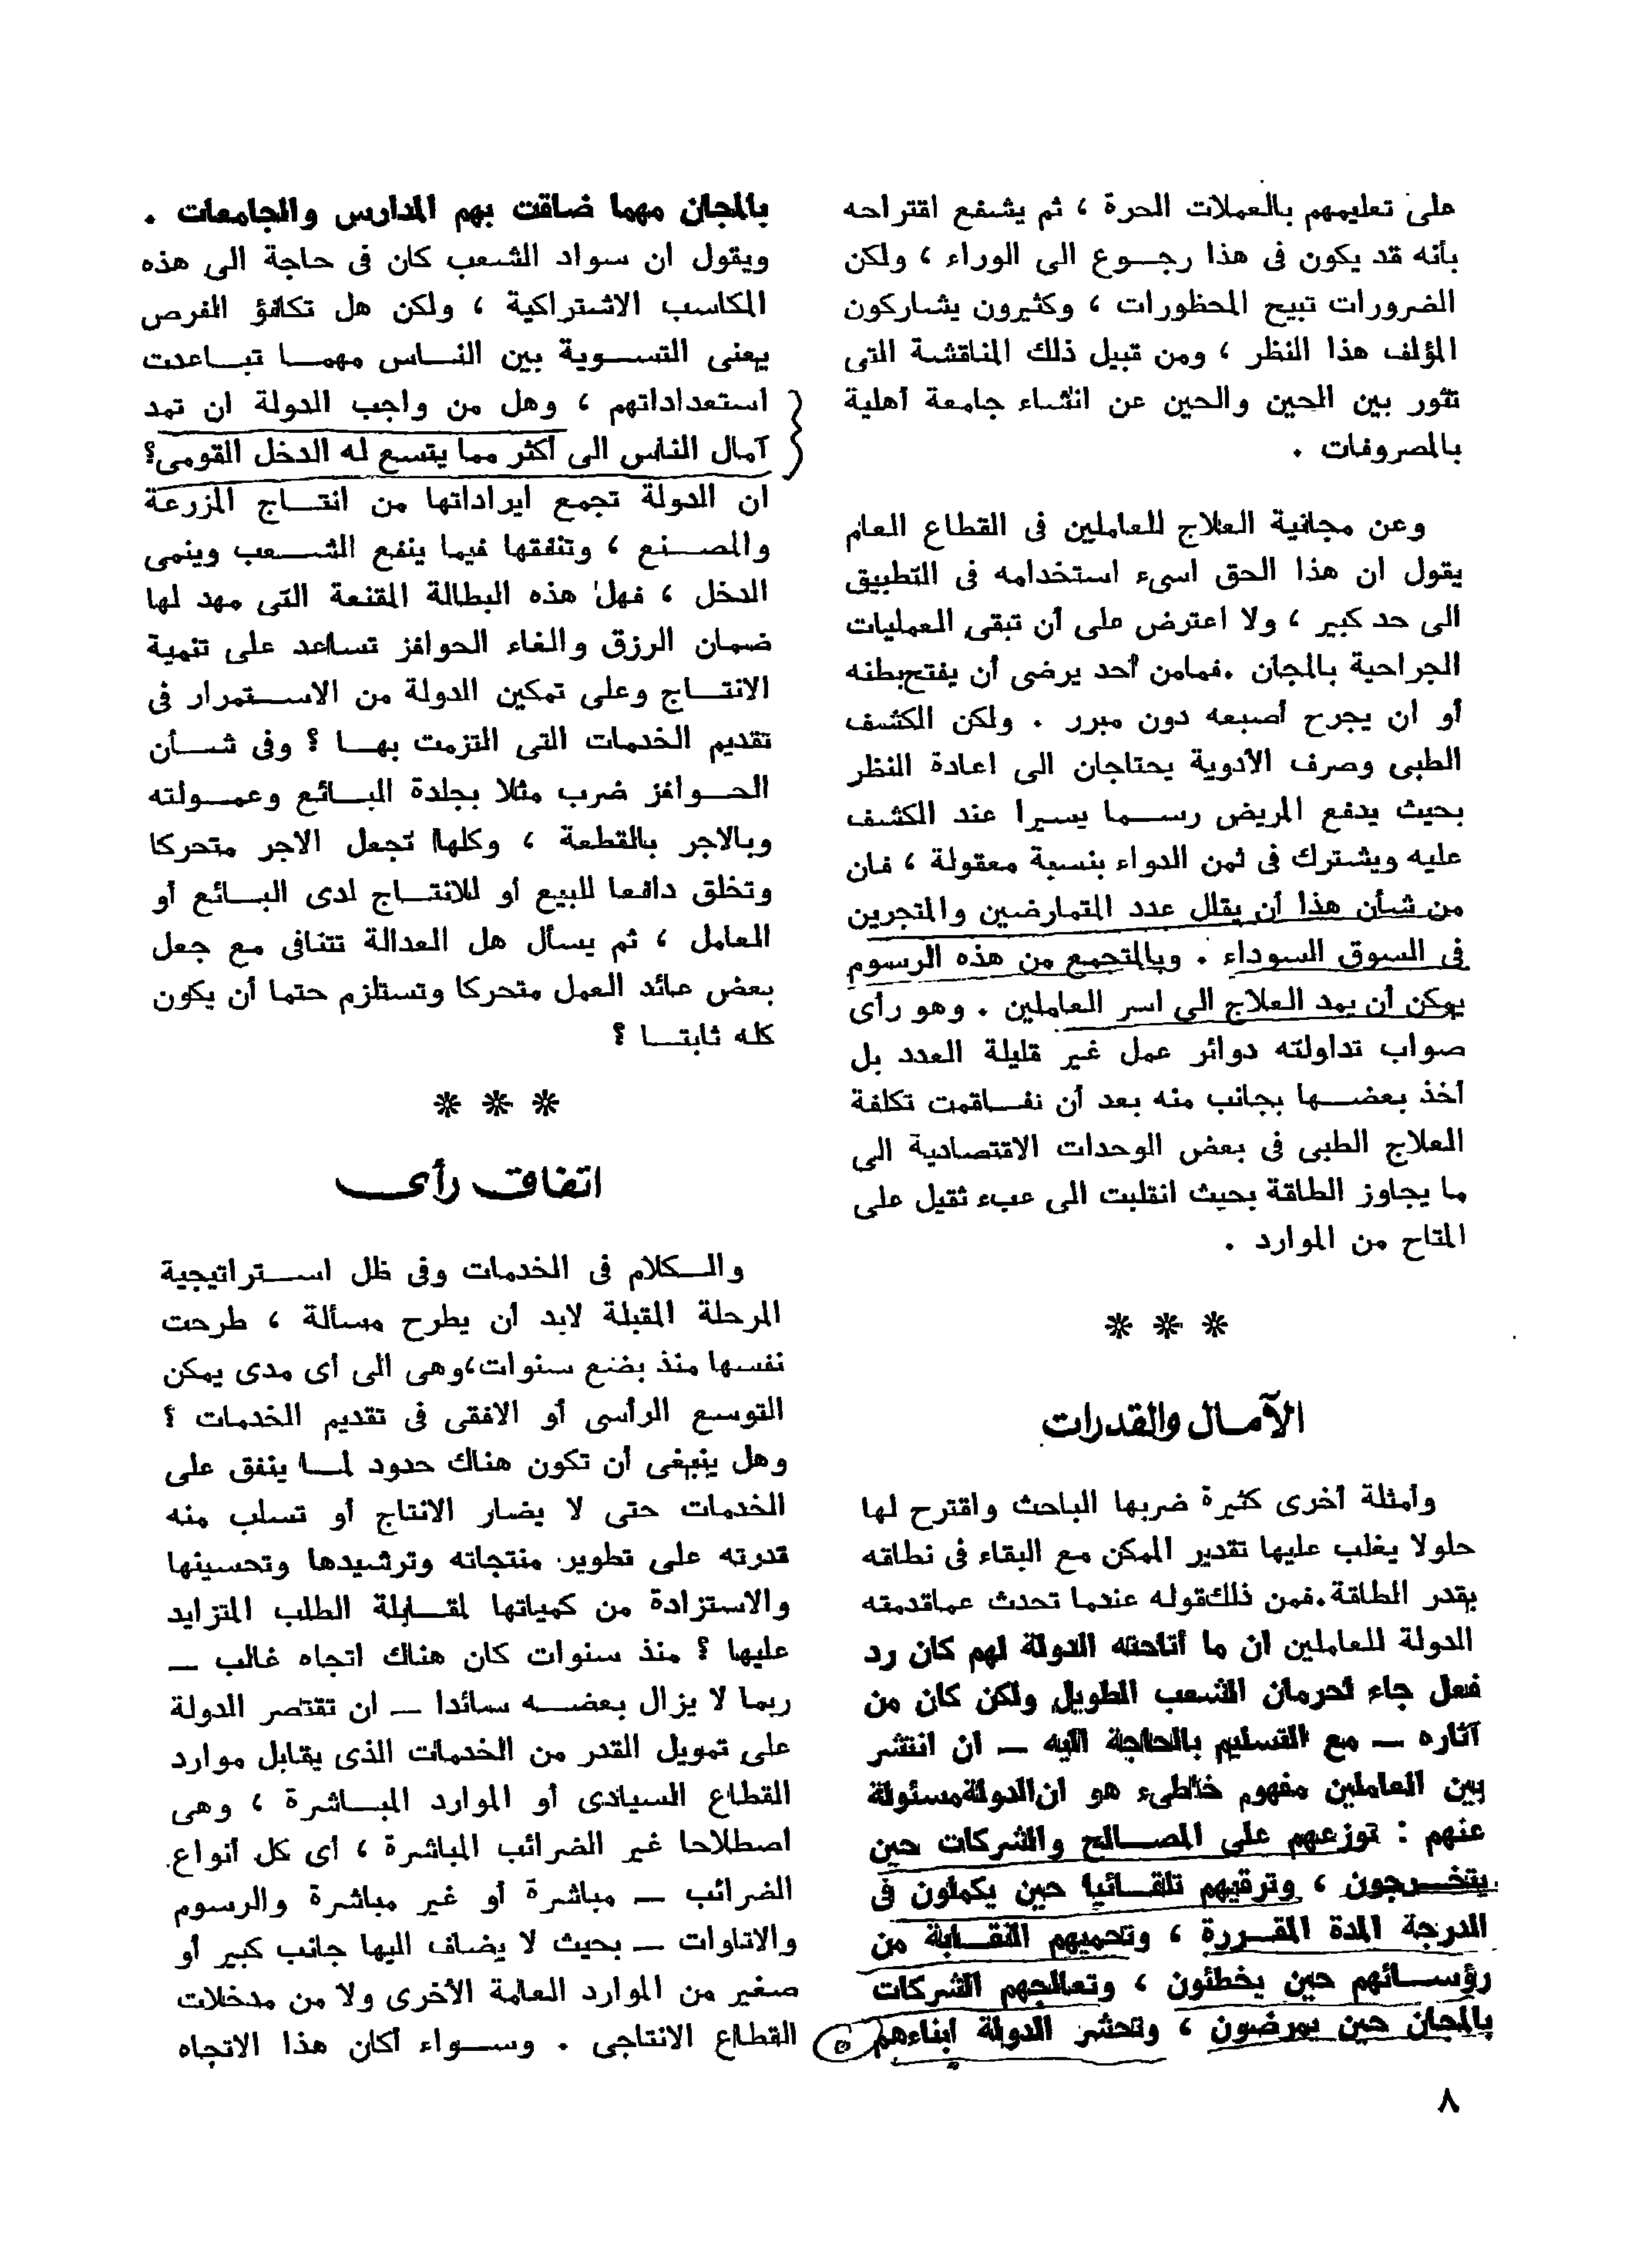 على تعليمهم بالعملات الحرة ، ثم يشفع اقتراحه
بأنه قد يكون فى هذا رجــوع الى الوراء ، ولكن
الضرورات تبيح المحظورات ، وكثيرون يشاركون
المؤلف هذا النظر ، ومن قبيل ذلك المناقشة التى
تثور بين الحين والحين عن انشاء جامعة أهلية
بالمصروفات .
وعن مجانية العلاج للعاملين فى القطاع العام
يقول ان هذا الحق اسىء استخدامه فى التطبيق
الى حد كبير ، ولا اعترض على أن تبقى العمليات
الجراحية بالمجان .فمامن أحد يرضى أن يفتح بطنه
أو أن يجرح أصبعه دون مبرر . ولكن الكشف
الطبى وصرف الأدوية يحتاجان الى اعادة النظر
بحيث يدفع المريض رســما يسيرا عند الكشف
عليه ويشترك فى ثمن الدواء بنسبة معقولة ، فان
من شأن هذا أن يقلل عدد المتمارضين والمتجرين
فى السوق السوداء . وبالمتجمع من هذه الرسوم
يمكن أن يمد العلاج الى اسر العاملين . وهو رأى
صواب تداولته دوائر عمل غير قليلة العدد بل
أخذ بعضــها بجانب منه بعد أن تفــاقمت تكلفة
العلاج الطبى فى بعض الوحدات الاقتصادية الى
ما يجاوز الطاقة بحيث انقلبت الى عبء ثقيل على
المتاح من الموارد .
* * *
الآمــال والقدرات
وأمثلة أخرى كثيرة ضربها الباحث واقترح لها
حلولا يغلب عليها تقدير الممكن مع البقاء فى نطاقه
بقدر الطاقة.فمن ذلك قوله عندما تحدث عما قدمته
الدولة للعاملين ان ما أتاحته الدولة لهم كان رد
فعل جاء لحرمان الشعب الطويل ولكن كان من
آثاره — مع التسليم بالحاجة اليه — ان انتشر
بين العاملين مفهوم خاطىء هو ان الدولة مسئولة
عنهم : توزعهم على المصــالح والشركات حين
يتخــرجون ، وترقيهم تلقــائيا حين يكملون فى
الدرجة المدة المقــررة ، وتحميهم النقــابة من
رؤســائهم حين يخطئون ، وتعالجهم الشركات
بالمجان حين يمرضون ، وتحشر الدولة ابناءهم
٨
بالمجان مهما ضاقت بهم المدارس والجامعات .
ويقول ان سواد الشعب كان فى حاجة الى هذه
المكاسب الاشتراكية ، ولكن هل تكافؤ الفرص
يعنى التســوية بين النــاس مهمــا تبــاعدت
استعداداتهم ، وهل من واجب الدولة ان تمد
آمال الناس الى أكثر مما يتسع له الدخل القومى؟
ان الدولة تجمع ايراداتها من انتــاج المزرعة
والمصــنع ، وتنفقها فيما ينفع الشــعب وينمى
الدخل ، فهل هذه البطالة المقنعة التى مهد لها
ضمان الرزق والغاء الحوافز تساعد على تنمية
الانتــاج وعلى تمكين الدولة من الاســتمرار فى
تقديم الخدمات التى التزمت بهــا ؟ وفى شــأن
الحــوافز ضرب مثلا بجلدة البــائع وعمــولته
وبالاجر بالقطعة ، وكلها تجعل الاجر متحركا
وتخلق دافعا للبيع أو للانتــاج لدى البــائع أو
العامل ، ثم يسأل هل العدالة تتنافى مع جعل
بعض عائد العمل متحركا وتستلزم حتما أن يكون
كله ثابتــا ؟
* * *
اتفاق رأى
والــكلام فى الخدمات وفى ظل اســتراتيجية
المرحلة المقبلة لابد أن يطرح مسألة ، طرحت
نفسها منذ بضع سنوات،وهى الى أى مدى يمكن
التوسع الرأسى أو الافقى فى تقديم الخدمات ؟
وهل ينبغى أن تكون هناك حدود لمــا ينفق على
الخدمات حتى لا يضار الانتاج أو تسلب منه
قدرته على تطوير منتجاته وترشيدها وتحسينها
والاستزادة من كمياتها لمقــابلة الطلب المتزايد
عليها ؟ منذ سنوات كان هناك اتجاه غالب —
ربما لا يزال بعضــه سائدا — ان تقتصر الدولة
على تمويل القدر من الخدمات الذى يقابل موارد
القطاع السيادى أو الموارد المبــاشرة ، وهى
اصطلاحا غير الضرائب المباشرة ، أى كل أنواع
الضرائب — مباشرة أو غير مباشرة والرسوم
والاتاوات — بحيث لا يضاف اليها جانب كبير أو
صغير من الموارد العامة الأخرى ولا من مدخلات
القطاع الانتاجى . وســواء أكان هذا الاتجاه